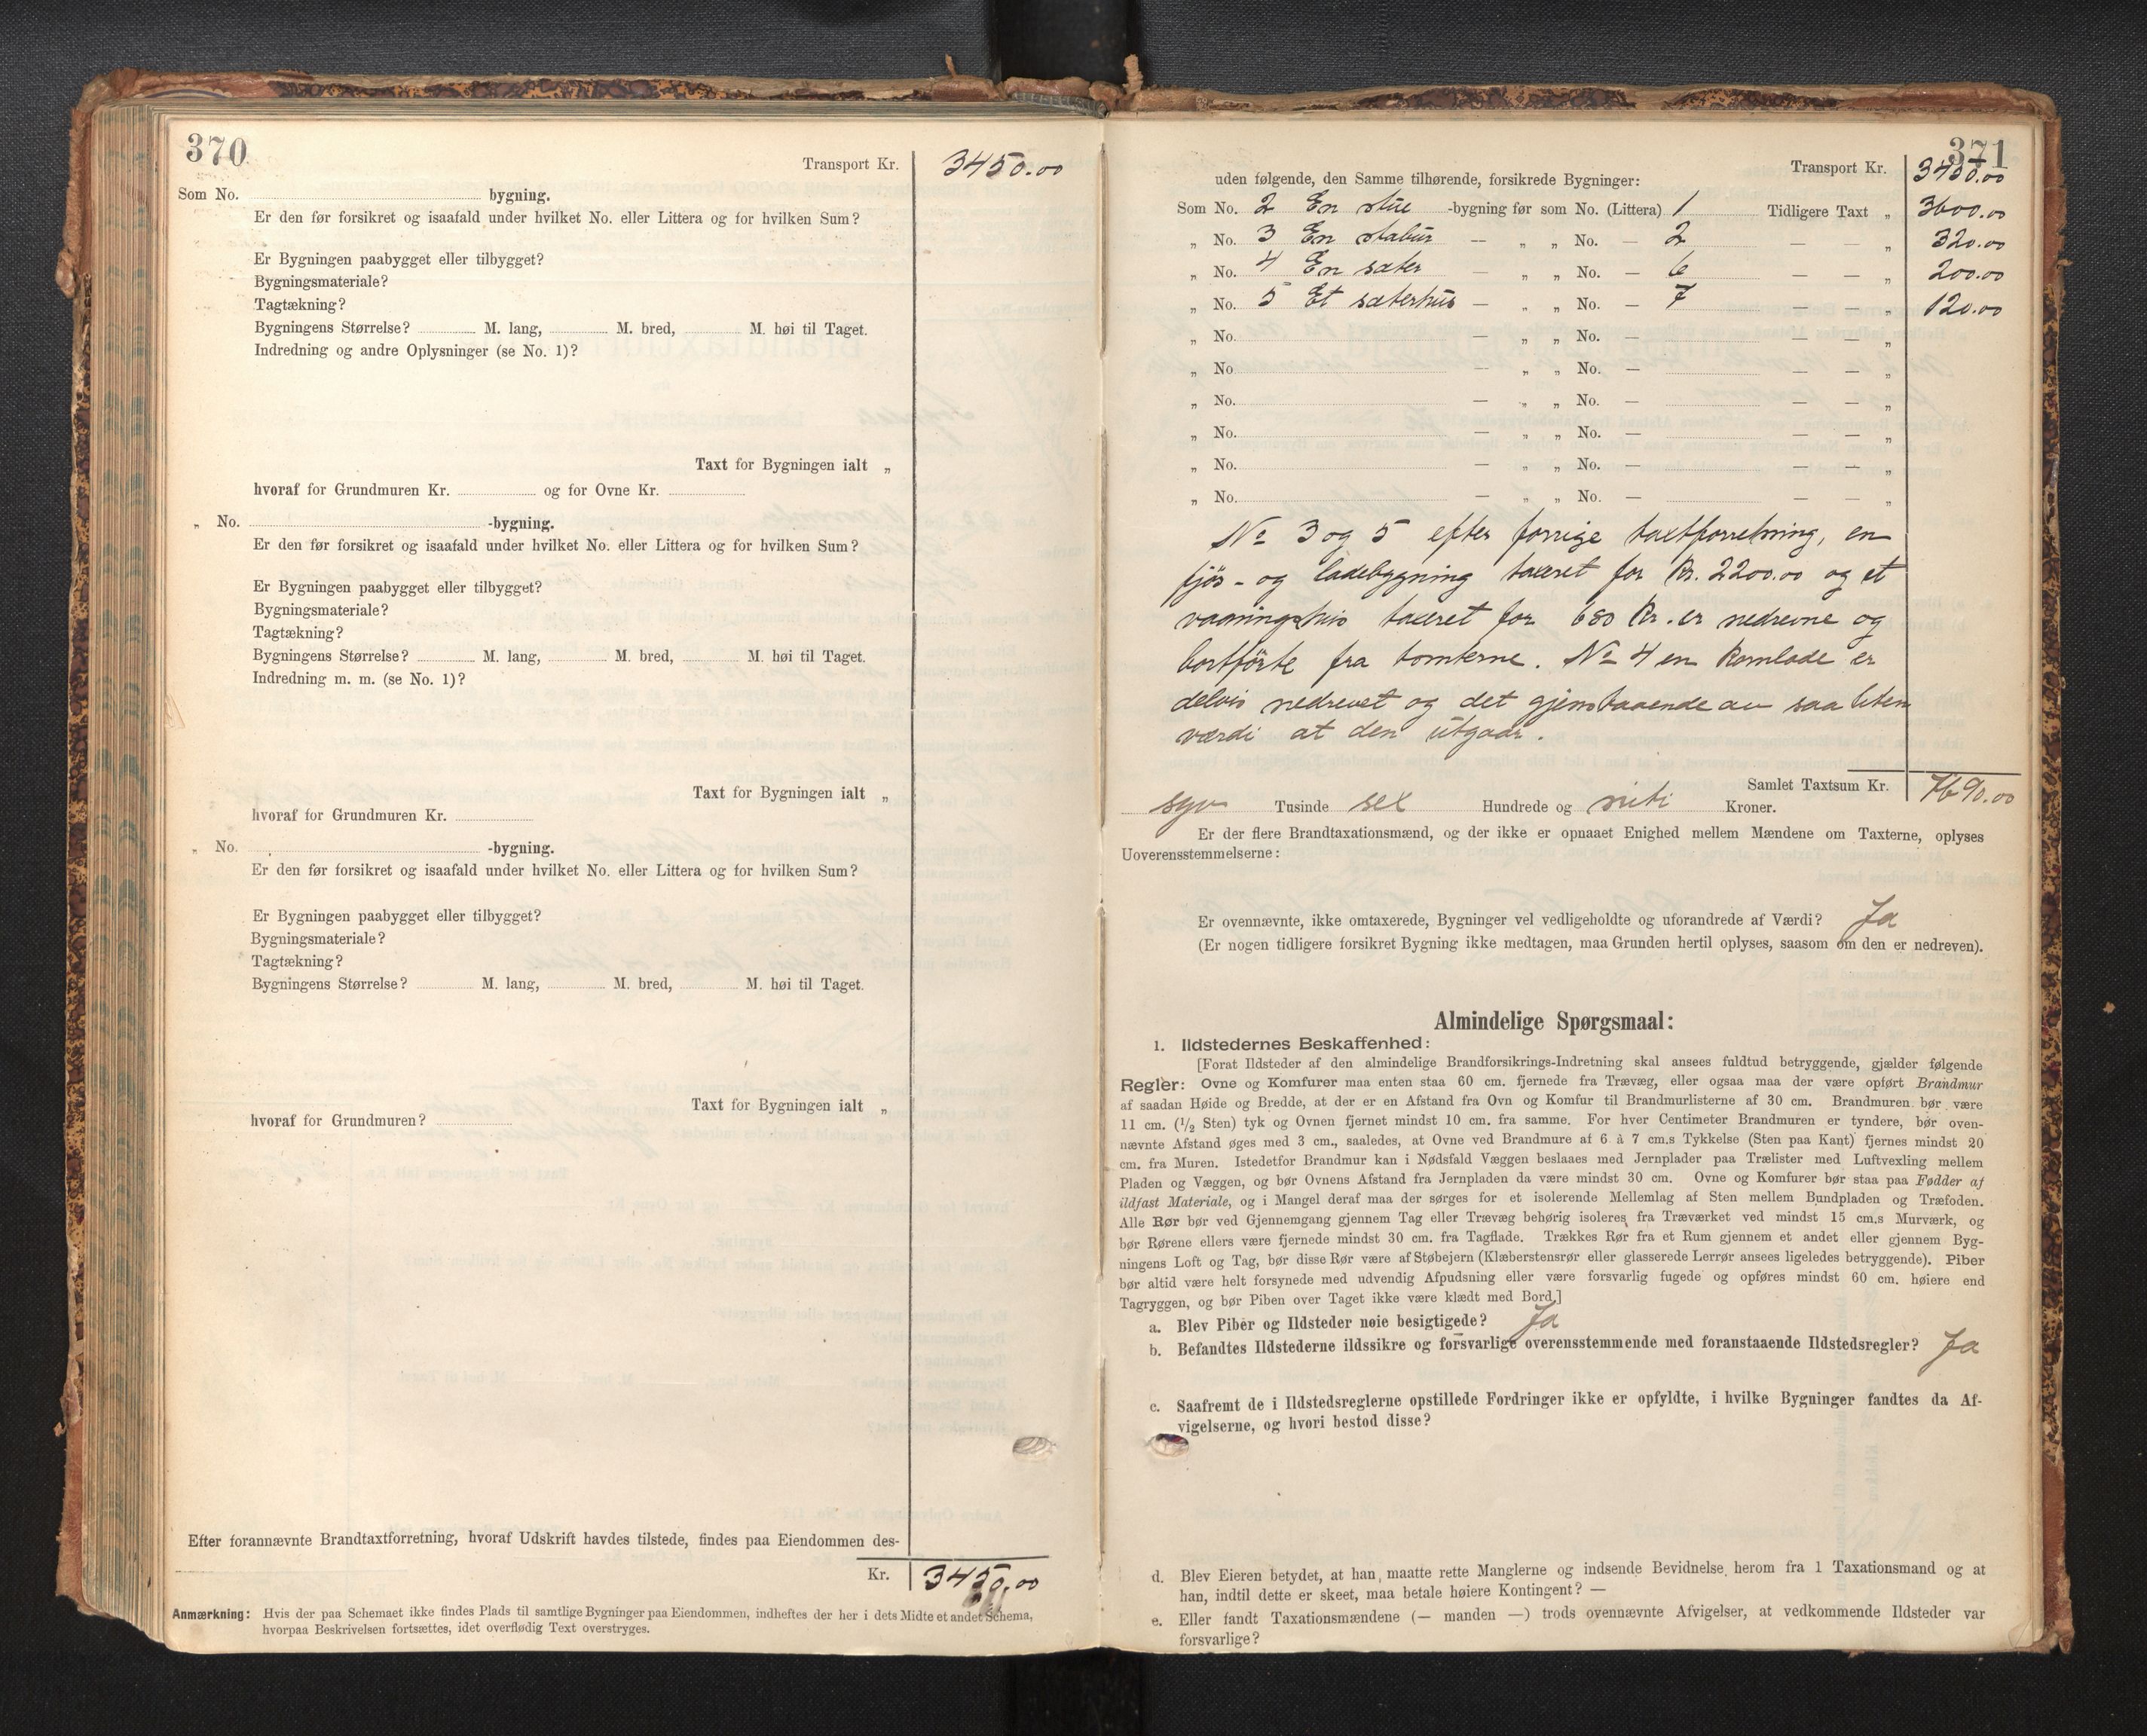 370
Transport Kr. 3450.00
Som No. bygning.
Er den før forsikret og isaafald under hvilket No. eller Littera og for hvilken Sum?
Er Bygningen paabygget eller tilbygget?
Bygningsmateriale?
Tagtækning?
Bygningens Størrelse? M. lang, M. bred, M. høi til Taget.
Indredning og andre Oplysninger (se No. 1)?
Taxt for Bygningen ialt „
hvoraf for Grundmuren Kr. og for Ovne Kr.
„ No. -bygning.
Er den før forsikret og isaafald under hvilket No. eller Littera og for hvilken Sum?
Er Bygningen paabygget eller tilbygget?
Bygningsmateriale?
Tagtækning?
Bygningens Størrelse? M. lang, M. bred, M. høi til Taget.
Indredning m. m. (se No. 1)?
Taxt for Bygningen ialt „
hvoraf for Grundmuren Kr.
„ No. -bygning.
Er den før forsikret og isaafald under hvilket No. eller Littera og for hvilken Sum?
Er Bygningen paabygget eller tilbygget?
Bygningsmateriale?
Tagtækning?
Bygningens Størrelse? M. lang, M. bred, M. høi til Taget.
Taxt for Bygningen ialt „
hvoraf for Grundmuren?
Efter forannævnte Brandtaxtforretning, hvoraf Udskrift havdes tilstede, findes paa Eiendommen des-
Kr. 3450.00
Anmærkning: Hvis der paa Schemaet ikke findes Plads til samtlige Bygninger paa Eiendommen, indheftes der her i dets Midte et andet Schema,
hvorpaa Beskrivelsen fortsættes, idet overflødig Text overstryges.
371
Transport Kr. 3450.00
uden følgende, den Samme tilhørende, forsikrede Bygninger:
Som No. 2 En stue -bygning før som No. (Littera) 1 Tidligere Taxt „ 3600.00
„ No. 3 En stabur — „ „ No. — 2 — — „ 320.00
„ No. 4 En sæter — „ „ No. — 6 — — „ 200.00
„ No. 5 Et sæterhus — „ „ No. — 7 — — „ 120.00
„ No. — „ „ No. — — — „
„ No — „ „ No. — — — „
„ No. — „ „ No. — — — „
„ No. — „ „ No. — — — „
„ No. — „ „ No. — — — „
„ No. — „ „ No. — — — „
No 3 og 5 efter forrige taxtforretning, en
fjøs- og ladebygning taxeret for Kr. 2200.00 og et
vaaningshus taxeret for 680 Kr. er nedrevne og
bortførte fra tomterne. No 4 en Kornlade er
delvis nedrevet og det gjenstaaende av saa liten
værdi at den utgaar.
Samlet Taxtsum Kr. 7690.00
syv Tusinde sex Hundrede og niti Kroner.
Er der flere Brandtaxationsmænd, og der ikke er opnaaet Enighed mellem Mændene om Taxterne, oplyses
Uoverensstemmelserne:
Er ovennævnte, ikke omtaxerede, Bygninger vel vedligeholdte og uforandrede af Værdi? Ja
(Er nogen tidligere forsikret Bygning ikke medtagen, maa Grunden hertil oplyses, saasom om den er nedreven).
Almindelige Spørgsmaal:
1. Ildstedernes Beskaffenhed:
[Forat Ildsteder af den almindelige Brandforsikrings-Indretning skal ansees fuldtud betryggende, gjælder følgende
Regler: Ovne og Komfurer maa enten staa 60 cm. fjernede fra Trævæg, eller ogsaa maa der være opført Brandmur
af saadan Høide og Bredde, at der er en Afstand fra Ovn og Komfur til Brandmurlisterne af 30 cm. Brandmuren bør være
11 cm. (1/2 Sten) tyk og Ovnen fjernet mindst 10 cm. fra samme. For hver Centimeter Brandmuren er tyndere, bør oven-
nævnte Afstand øges med 3 cm., saaledes, at Ovne ved Brandmure af 6 à 7 cm.s Tykkelse (Sten paa Kant) fjernes mindst 20
cm. fra Muren. Istedetfor Brandmur kan i Nødsfald Væggen beslaaes med Jernplader paa Trælister med Luftvexling mellem
Pladen og Væggen, og bør Ovnens Afstand fra Jernpladen da være mindst 30 cm. Ovne og Komfurer bør staa paa Fødder af
ildfast Materiale, og i Mangel deraf maa der sørges for et isolerende Mellemlag af Sten mellem Bundpladen og Træfoden.
Alle Rør bør ved Gjennemgang gjennem Tag eller Trævæg behørig isoleres fra Træværket ved mindst 15 cm.s Murværk, og
bør Rørene ellers være fjernede mindst 30 cm. fra Tagflade. Trækkes Rør fra et Rum gjennem et andet eller gjennem Byg-
ningens Loft og Tag, bør disse Rør være af Støbejern (Klæberstensrør eller glasserede Lerrør ansees ligeledes betryggende). Piber
bør altid være helt forsynede med udvendig Afpudsning eller være forsvarlig fugede og opføres mindst 60 cm. høiere end
Tagryggen, og bør Piben over Taget ikke være klædt med Bord.]
a. Blev Piber og Ildsteder nøie besigtigede? Ja
b. Befandtes Ildstederne ildssikre og forsvarlige overensstemmende med foranstaaende Ildstedsregler? Ja
c. Saafremt de i Ildstedsreglerne opstillede Fordringer ikke er opfyldte, i hvilke Bygninger fandtes da Af-
vigelserne, og hvori bestod disse?
d. Blev Eieren betydet, at han maatte rette Manglerne og indsende Bevidnelse herom fra 1 Taxationsmand og at
han, indtil dette er skeet, maa betale høiere Kontingent? —
e. Eller fandt Taxationsmændene (— manden —) trods ovennævnte Afvigelser, at vedkommende Ildsteder var
forsvarlige?